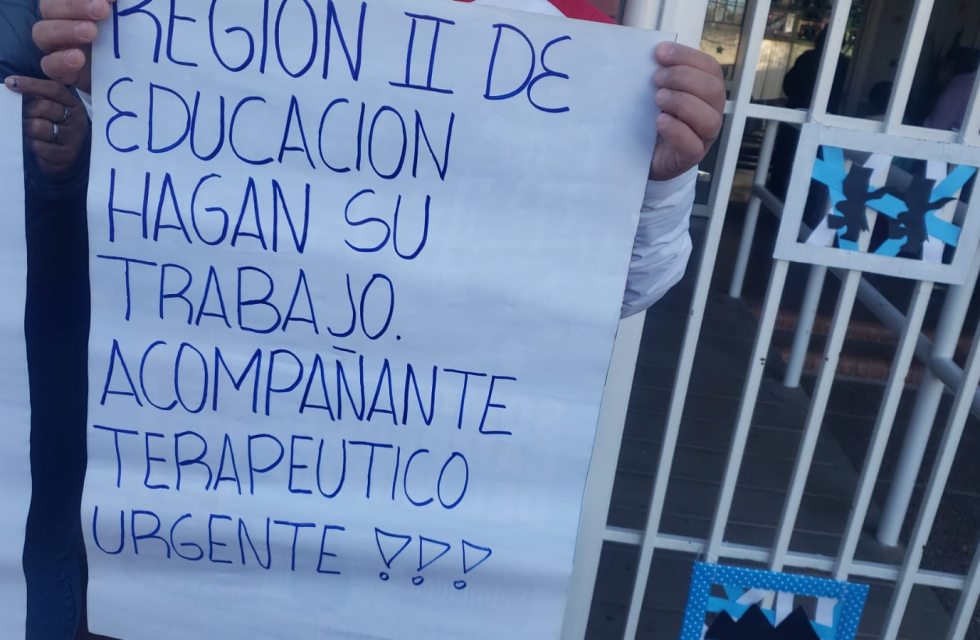 REGION II DE
EDUCACION
HAGAN SU
TRABAJO.
ACOMPAÑANTE
TERAPEUTICO
URGENTE !!!